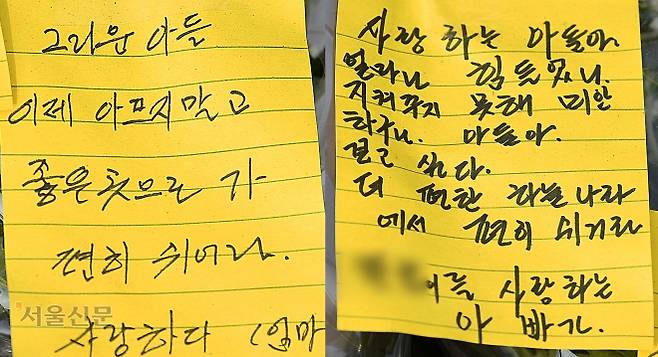 그리운 아들
이제 아프지말고
좋은곳으로 가
편히 쉬어라.
사랑한다 (엄마
서울신문
사랑하는 아들아.
얼마나 힘들었니.
지켜주지 못해 미안
하구나. 아들아.
보고 싶다.
더 편한 하늘나라
에서 편히 쉬거라
아들 사랑하는
아빠가.